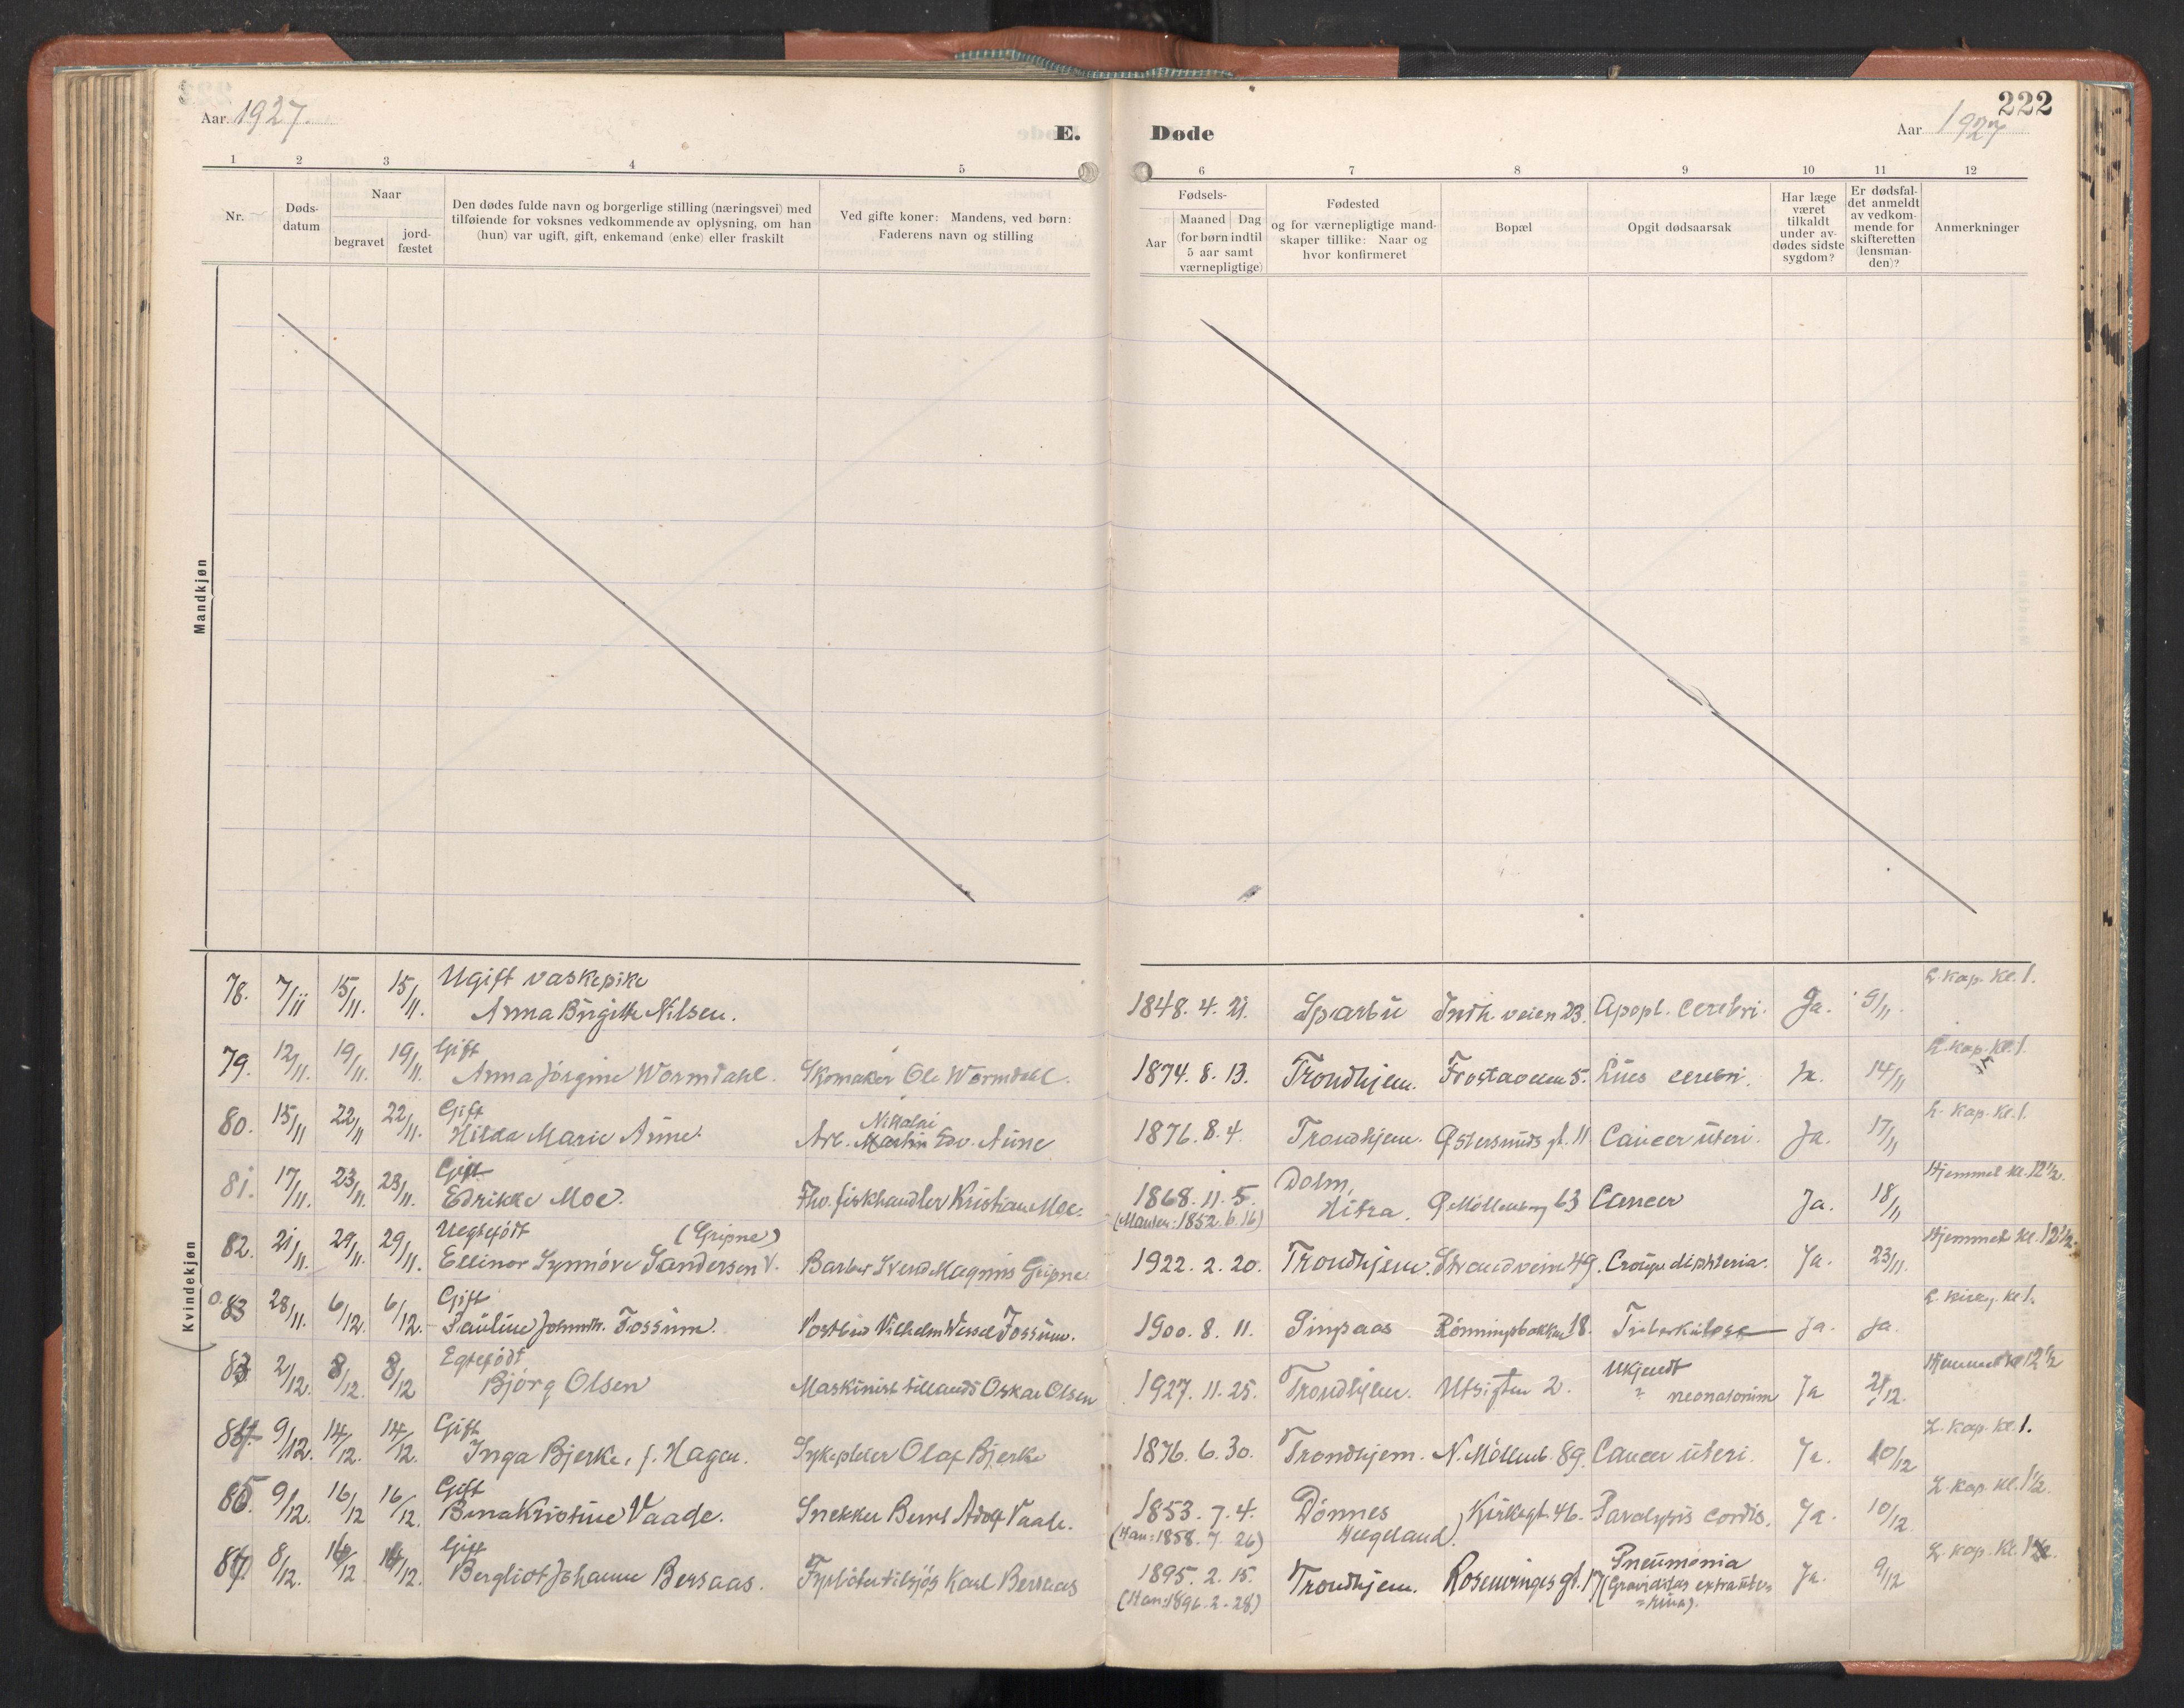 Aar 1927.
E. Døde
222
Aar 1927
1 2 3 4 5 6 7 8 9 10 11 12
Nr.
Døds-
datum
Naar
begravet
jord-
fæstet
Den dødes fulde navn og borgerlige stilling (næringsvei) med
tilføiende for voksnes vedkommende av oplysning, om han
(hun) var ugift, gift, enkemand (enke) eller fraskilt
Ved gifte koner: Mandens, ved børn:
Faderens navn og stilling
Fødsels-
Aar
Maaned Dag
(for børn indtil
5 aar samt
værnepligtige)
Fødested
og for værnepligtige mand-
skaper tillike: Naar og
hvor konfirmeret
Bopæl
Opgit dødsaarsak
Har læge
været
tilkaldt
under av-
dødes sidste
sygdom?
Er dødsfal-
det anmeldt
av vedkom-
mende for
skifteretten
(lensman-
den)?
Anmerkninger
Mandkjøn
Kvindekjøn
78. 7/11 15/11. 15/11. Ugift vaskepike
Anna Birgitte Nilsen.
1848. 4. 21. Sparbu Indh. veien 23. Apopl. cerebri. Ja. 9/11. L. kap. kl. 1.
79. 12/11. 19/11. 19/11. Gift
Anna Jörgine Wormdahl. Skomaker Ole Wormdahl.
1874. 8. 13. Trondhjem. Frostaveien 5. Lues cerebri. Ja. 14/11 L. kap. kl. 1.
80. 15/11 22/11 22/11. Gift
Hilda Marie Aune. Arb. Martin Edv. Aune
Nikolai
1876. 8. 4. Trondhjem. Østersunds gt. 11 Cancer uteri. Ja. 17/11 L. kap. kl. 1.
81. 17/11. 23/11. 23/11. Gift
Edrikke Moe. Fhv. fiskhandler Kristian Moe.
1868. 11. 5. Dolm,
Hitra. Ø. Möllenberg 63 Cancer Ja. 18/11 Hjemmet kl. 12½.
(Manden: 1852. 6. 16)
82. 21/11. 29/11. 29/11. Uegtefödt (Gripne)
Ellinor Synnöve Sandersen Barber Sverd Magnus Gripne.
1922. 2. 20. Trondhjem. Strandveien 49. Croup diphteria. Ja. 23/11. Hjemmet kl. 12½.
83 28/11. 6/12. 6/12. Gift
Pauline Johnsdtr. Fossum. Postbud Vilhelm Wessel Fossum.
1900. 8. 11. Singsaas Rönningsbakken 18. Tuberkulose Ja. Ja. L. kirkeg. kl. 1.
83 2/12. 8/12. 8/12 Egtefödt
Bjørg Olsen Maskinist tillands Oskar Olsen
1927. 11. 25. Trondhjem. Utsigten 2. Ukjendt
? neonatorum Ja 2/12. Hjemmet kl 12½
84. 9/12. 14/12. 14/12. Gift
Inga Bjerke, f. Hagen. Sykepleier Olaf Bjerke
1876. 6. 30. Trondhjem. N. Möllenb. 89. Cancer uteri. Ja. 10/12 L. kap. kl. 1.
85. 9/12. 16/12 16/12. Gift
Bina Kristine Vaade. Snekker Bernt Adolf Vaade.
1853. 7. 4. Dönnes
Helgeland Kirkegt. 46. Paralysis cordis. Ja. 10/12. L. kap. kl. 1½.
(Han: 1858. 7. 26)
8/12. 16/12 Gift
Bergliot Johanne Bersaas. Fyrböter tilsjös Karl Bersaas
1895. 2. 15. Trondhjem. Rosenvinges gt. 17 Pneumonia
(Graviditas extraute-
rina). Ja. 9/12 L. kap. kl.
(Han: 1896. 2. 28)